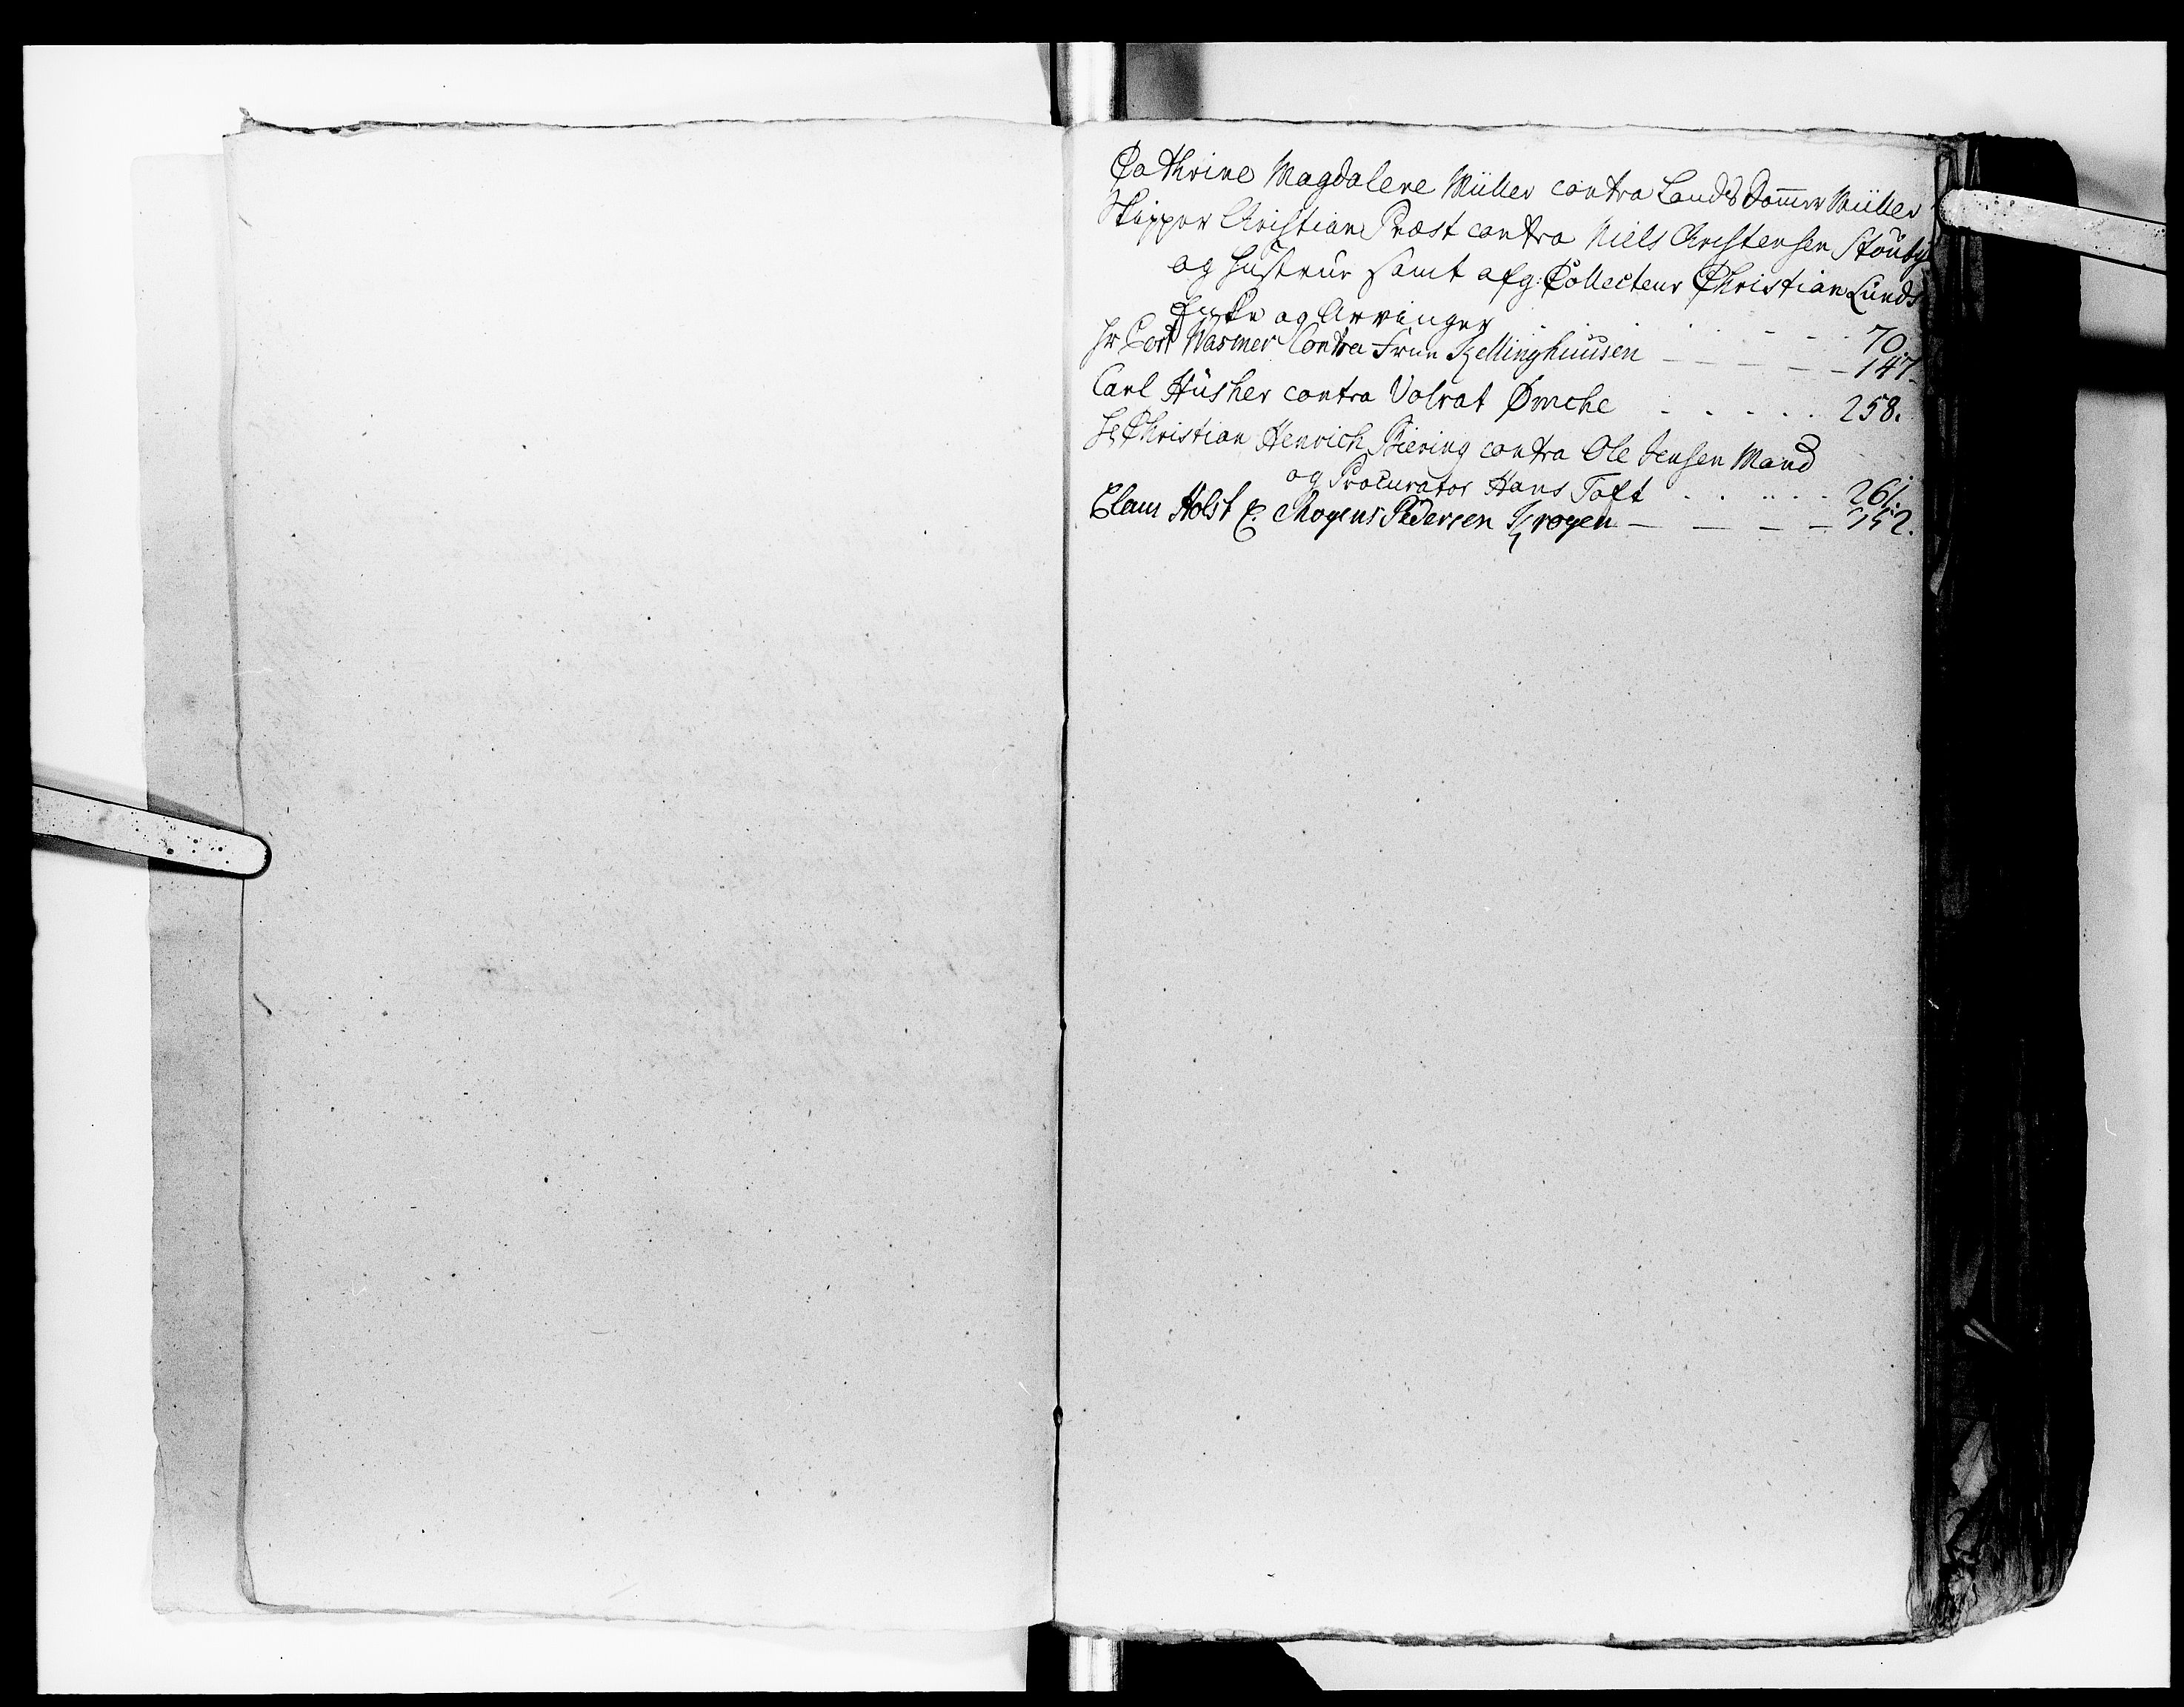 Cathrine Magdalene Müller contra Lands Dommer Müller
Skipper Christian Præst contra Niels Christensen Stouby
og Hustrue samt afg: Collecteur Christian Lunds
Encke og Arvinger . . . . 70.
Hr Etat Wasmer Contra Frue Kellinghuusen — — — — 147
Carl Hüsher contra Volrat Ømche . . . . . 258.
Hr Christian Henrich Biering contra Ole Jensen Mand
og Procurator Hans Toft . . . . . . 261.
Claus Holst C. Mogens Pedersen Krogen — — — — 352.